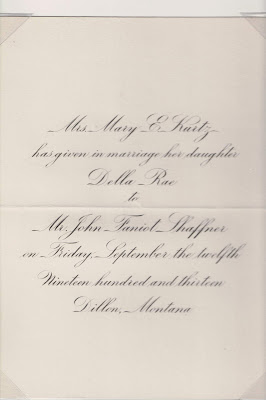 Mrs. Mary E. Kurtz
has given in marriage her daughter
Della Rae
to
Mr. John Taniot Shaffner
on Friday, September the twelfth
Nineteen hundred and thirteen
Dillon, Montana